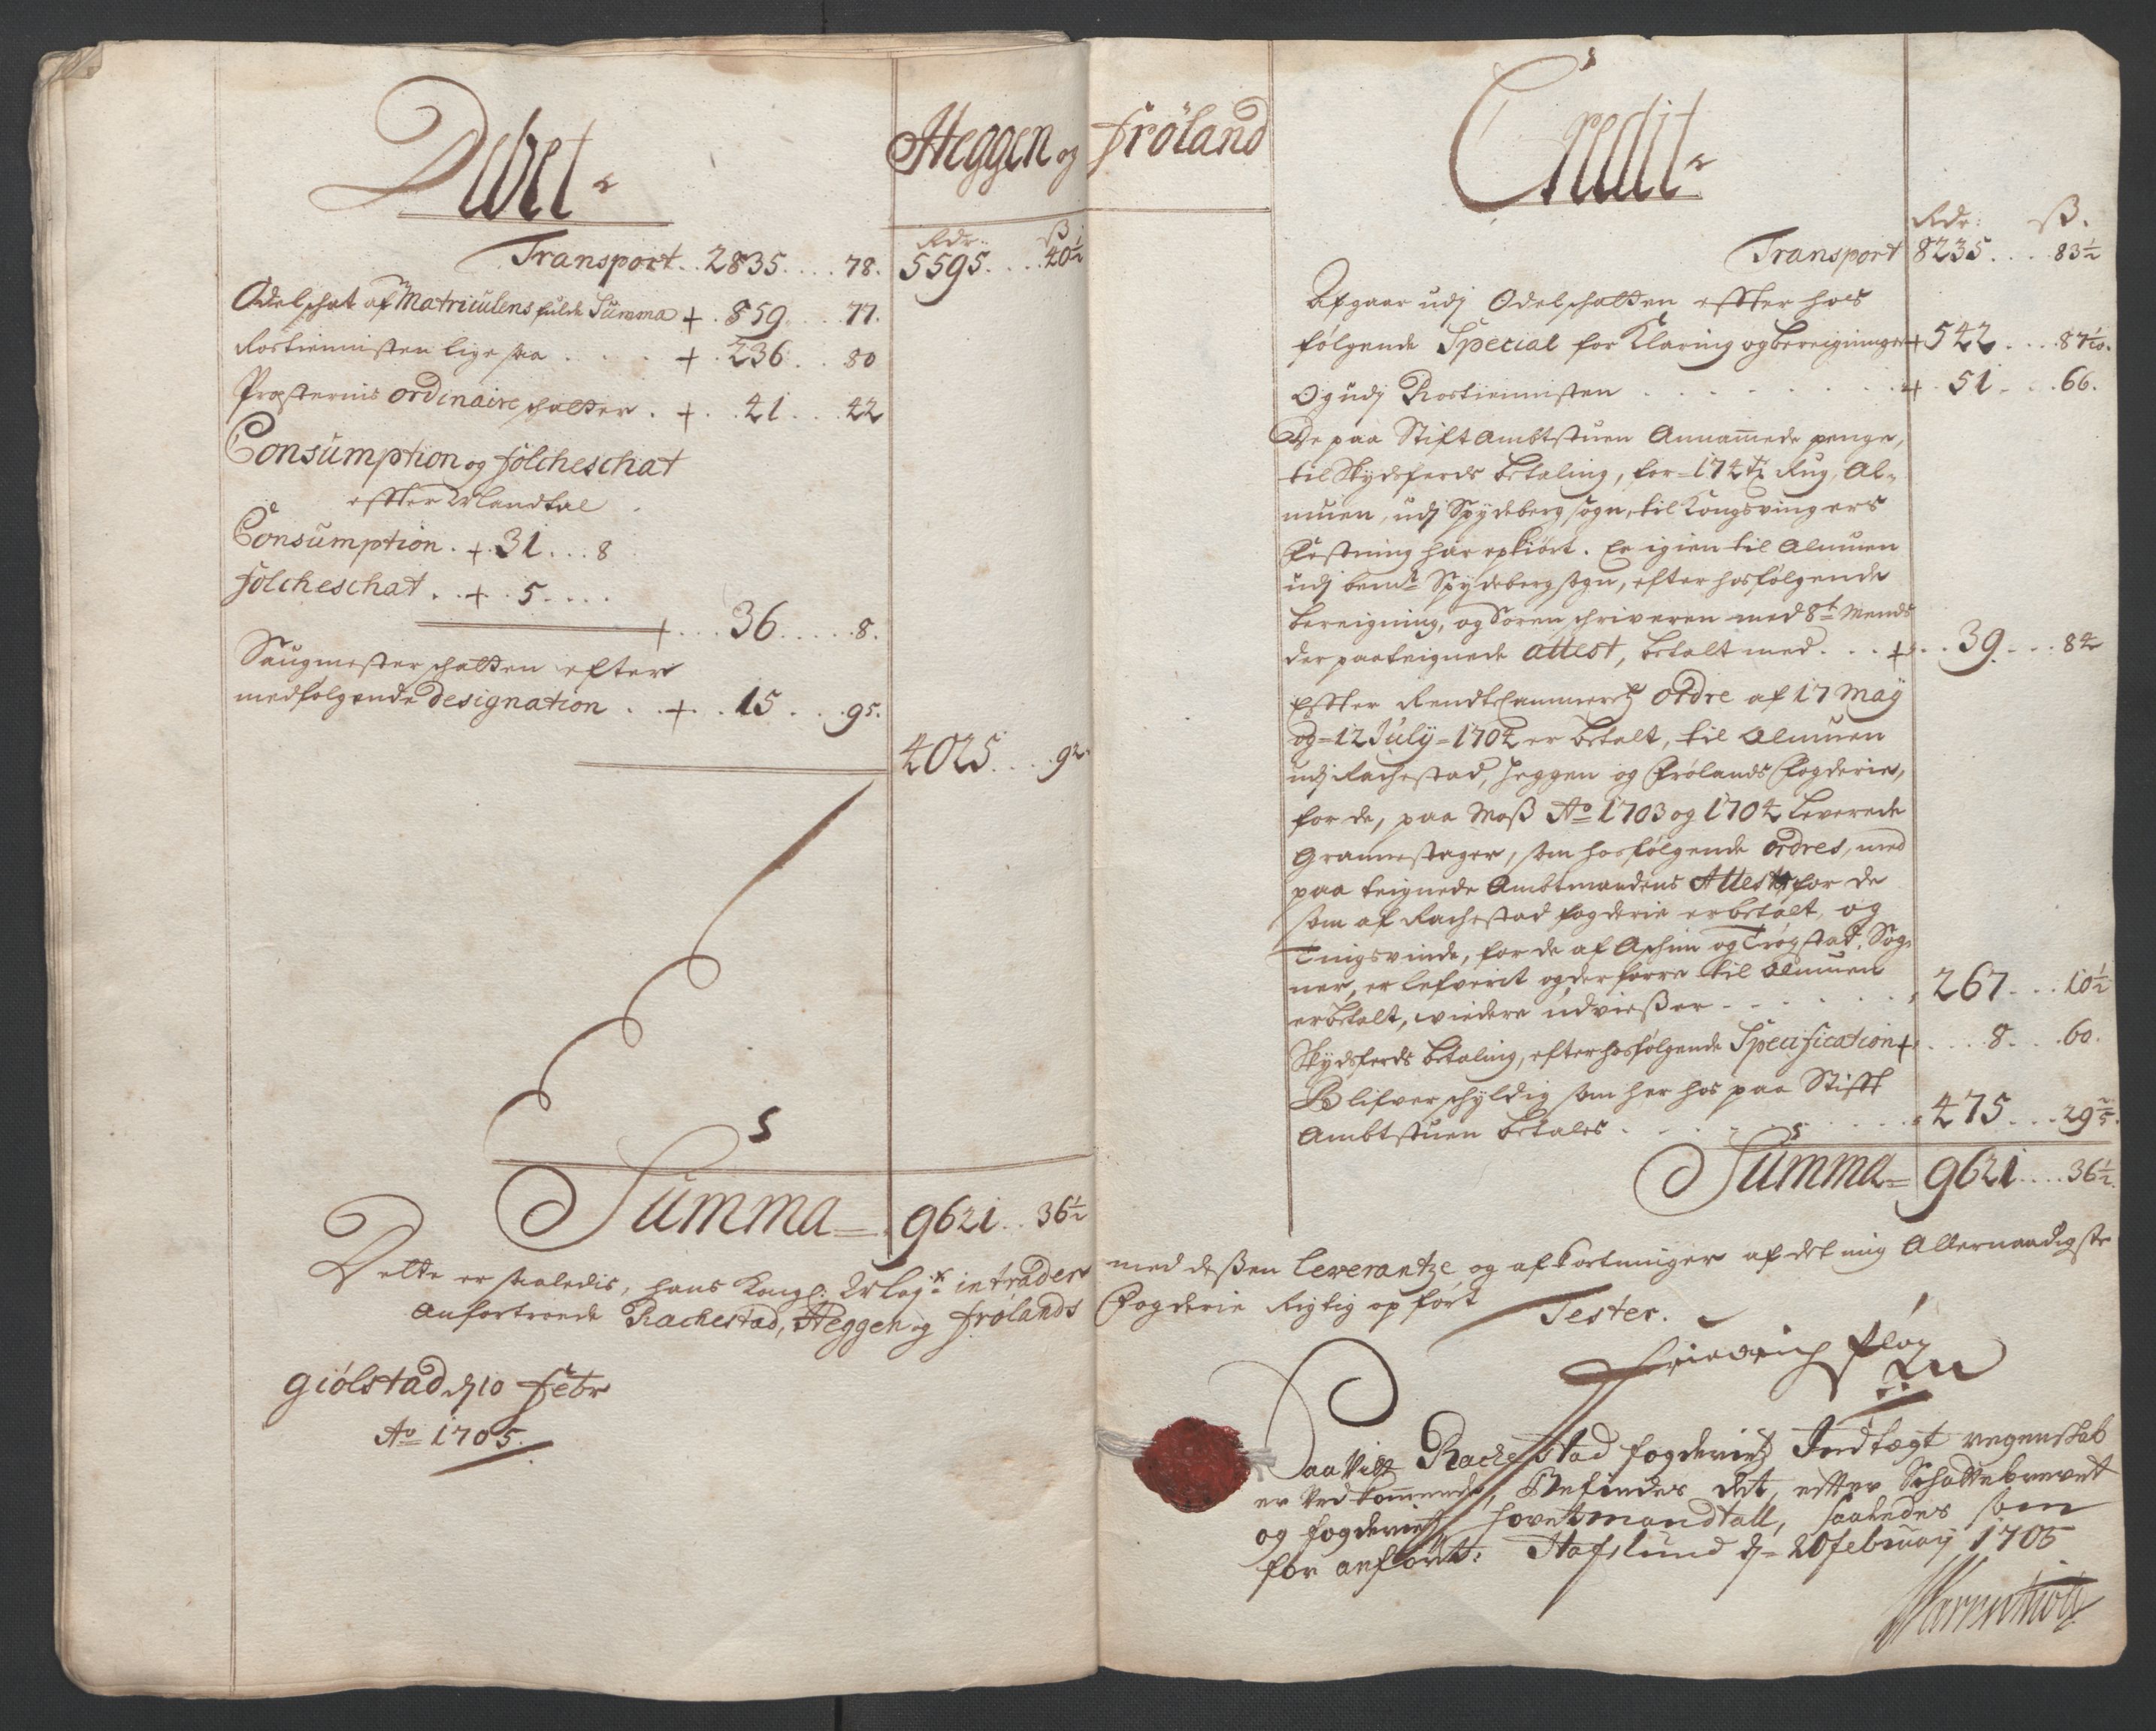 Debet
Heggen og Fröland
Rdr: ß
Transport . . 2835 . . . . 78. 5595 . . . . 40½
Odelschat af Matriculens fulde Summa + . 859 . . . . 77.
Rostiennisten lige saa . . . . + . 236 . . . 80
Præsternis ordinaire schatter . + . . 41 . . . 42
Consumption og folcheschat
effter Mandtal
Consumption . + . 31 . . . 8
folcheschat . . + . 5 . . . .
+ . . . 36 . . . . . 8.
Saugmester schatten efter
medfølgende designation . . + . . 15 . . . 95.
4025 . . . . 92.
Summa = 9621 . . 36½
Credit
Rdr: ß.
Transport 8235 . . . . 83½
Afgaar udj Odelschatten effter hos
følgende Special for Klaring og bereigninger + 542 . . . . 87
Og udj Rostiennisten . . . . . . + . 51 . . . . 66.
De paa Stift Ambtstuen Annammede penge,
til Skydsferds betaling, for = 174 tr Rug, Al=
muen, udj Spydeberg sogn, til Kongsvingers
Festning har opkiört. Er igien til Almuen
udj bemte Spydeberg sogn, efter hosfølgende
bereigning, og Soren schriveren med 8t Mends
der paateignede attest, betalt med . . . + . . 39 . . . 84
Effter Rendte Cammeretz ordre af 17 Maÿ
og = 12 Julÿ = 1704 er betalt, til Almuen
udj Rachestad, Heggen og Frölands Fogderie,
for de, paa Moß Ao 1703 og 1704 leverede
Grannestager, som hosfølgende ordres, med
paa teignede Ambtmandens Attest, for de
som af Rachestad fogderie er betalt, og
Tingsvinde, for de af Aschim og Trögstat Sog=
ner, er lefverit og derforre til Almuen
er betalt, viedere udvießer . . . . . . 267 . . . 10½
Skydsferds betaling, efter hosfølgende Specification + . . . . 8 . . . 60.
Blifver schyldig som her hos paa Stifft
Ambtstuen betales . . . . . . . 475 . . . 29⅖.
Summa = 9621 . . . . 36½.
Dette er saaledis, hans Kongl: Mayts intrader med deßen leverantze og afkortninger af det mig Allernaadigste
anfortroede Rachestad, Heggen og Frölands Fogderie Rigtig opfört
Tester.
giölstad d 10 Febr
Ao 1705.
Friedrich
Saa vit Rachestad fogderietz Indtægt regenskab
er vedkommende, Befindes det, efter Schattebrevet
og fogderietz hovetmandtall, saaledes som
for anfört: Hafslund d = 20 februarÿ 1705